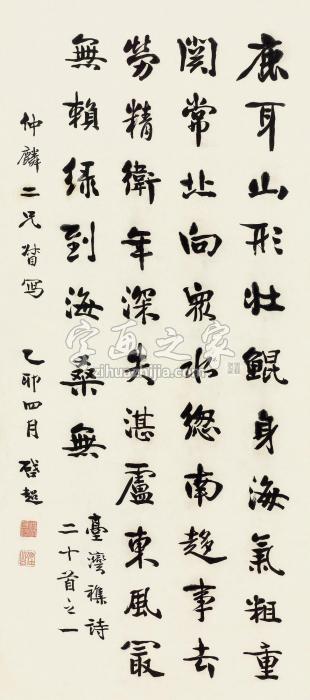 鹿耳山形壯鯤身海氣粗重
関常北向衆水總南趨事去
勞精衛年深失湛盧東風冣
無賴綠到海桑無
臺灣雜詩
二十首之一
仲麟二兄督寫 乙卯四月 啓超
字画之家
zihuazhijia.com